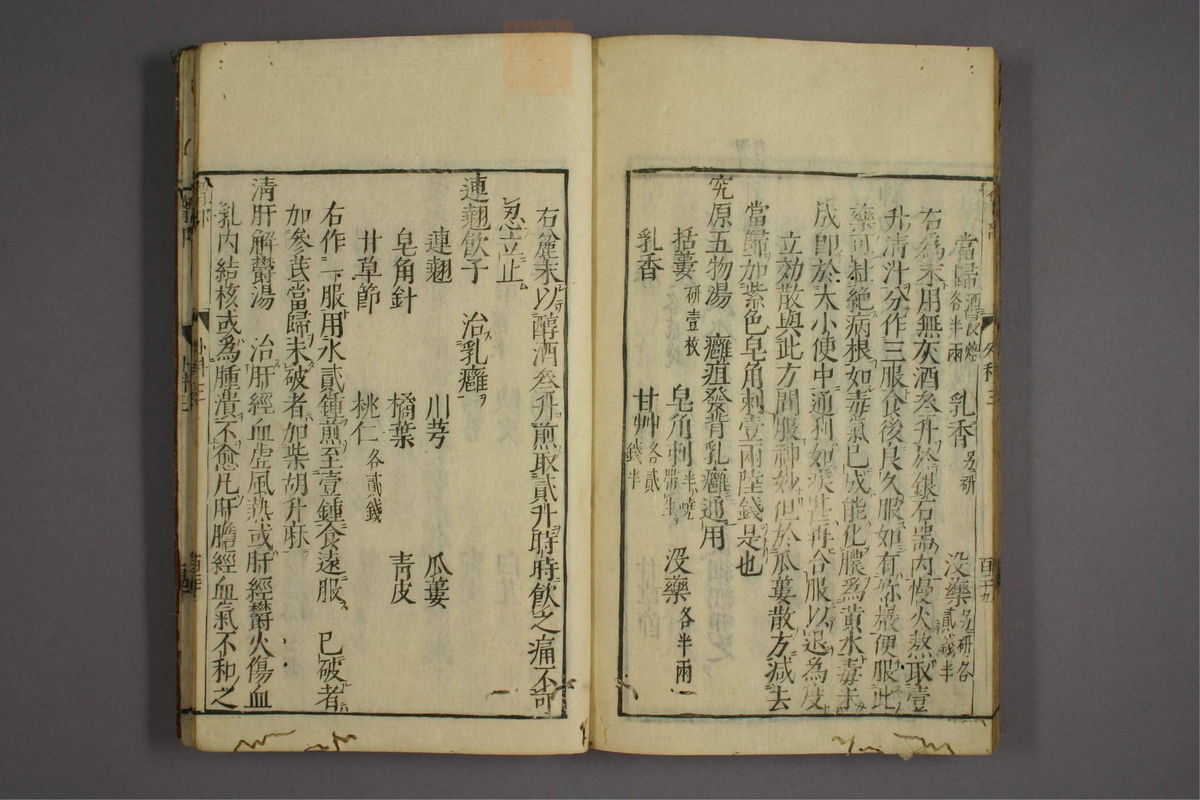 當歸酒浸焙各半兩 乳香另研 没藥另研各貳錢半
右為末用無灰酒叁升於銀石器内慢火熬取壹
升清汁分作三服食後良久服如有妳巖便服此
藥可杜絶病根如毒氣已成能化膿為黄水毒未
成即於大小便中通利如疾甚再合服以退為度
立効散與此方間服神妙但於瓜蔞散方減去
當歸加紫色皂角刺壹兩陸錢是也
究原五物湯 癰疽發背乳癰通用
括蔞研壹枚 皂角刺半燒帶生 没藥各半兩
乳香 甘艸各貳錢半
右麄末以醇酒叁升煎取貳升時時飲之痛不可
忍立止
連翹飲子 治乳癰
連翹 川芎 瓜蔞
皂角針 橘葉 青皮
甘草節 桃仁各貳錢
右作一服用水貳鍾煎至壹鍾食遠服 已破者
加參芪當歸未破者加柴胡升麻
清肝解鬱湯 治肝經血虚風熱或肝經鬱火傷血
乳内結核或為腫潰不愈凡肝膽經血氣不和之